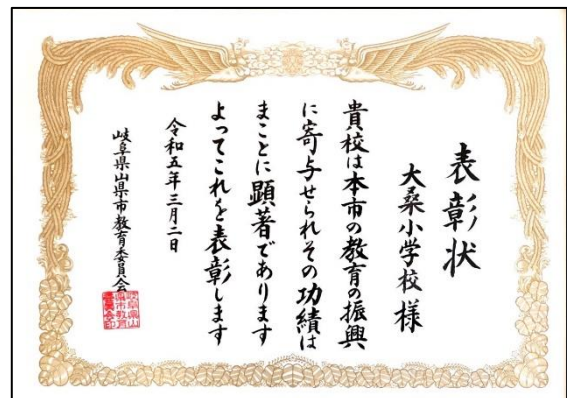 表彰状
大桑小学校様
貴校は本市の教育の振興
に寄与せられその功績は
まことに顕著であります
よってこれを表彰します
令和五年三月二日
岐阜県山県市教育委員会
岐阜県山
県市教育
委員会印